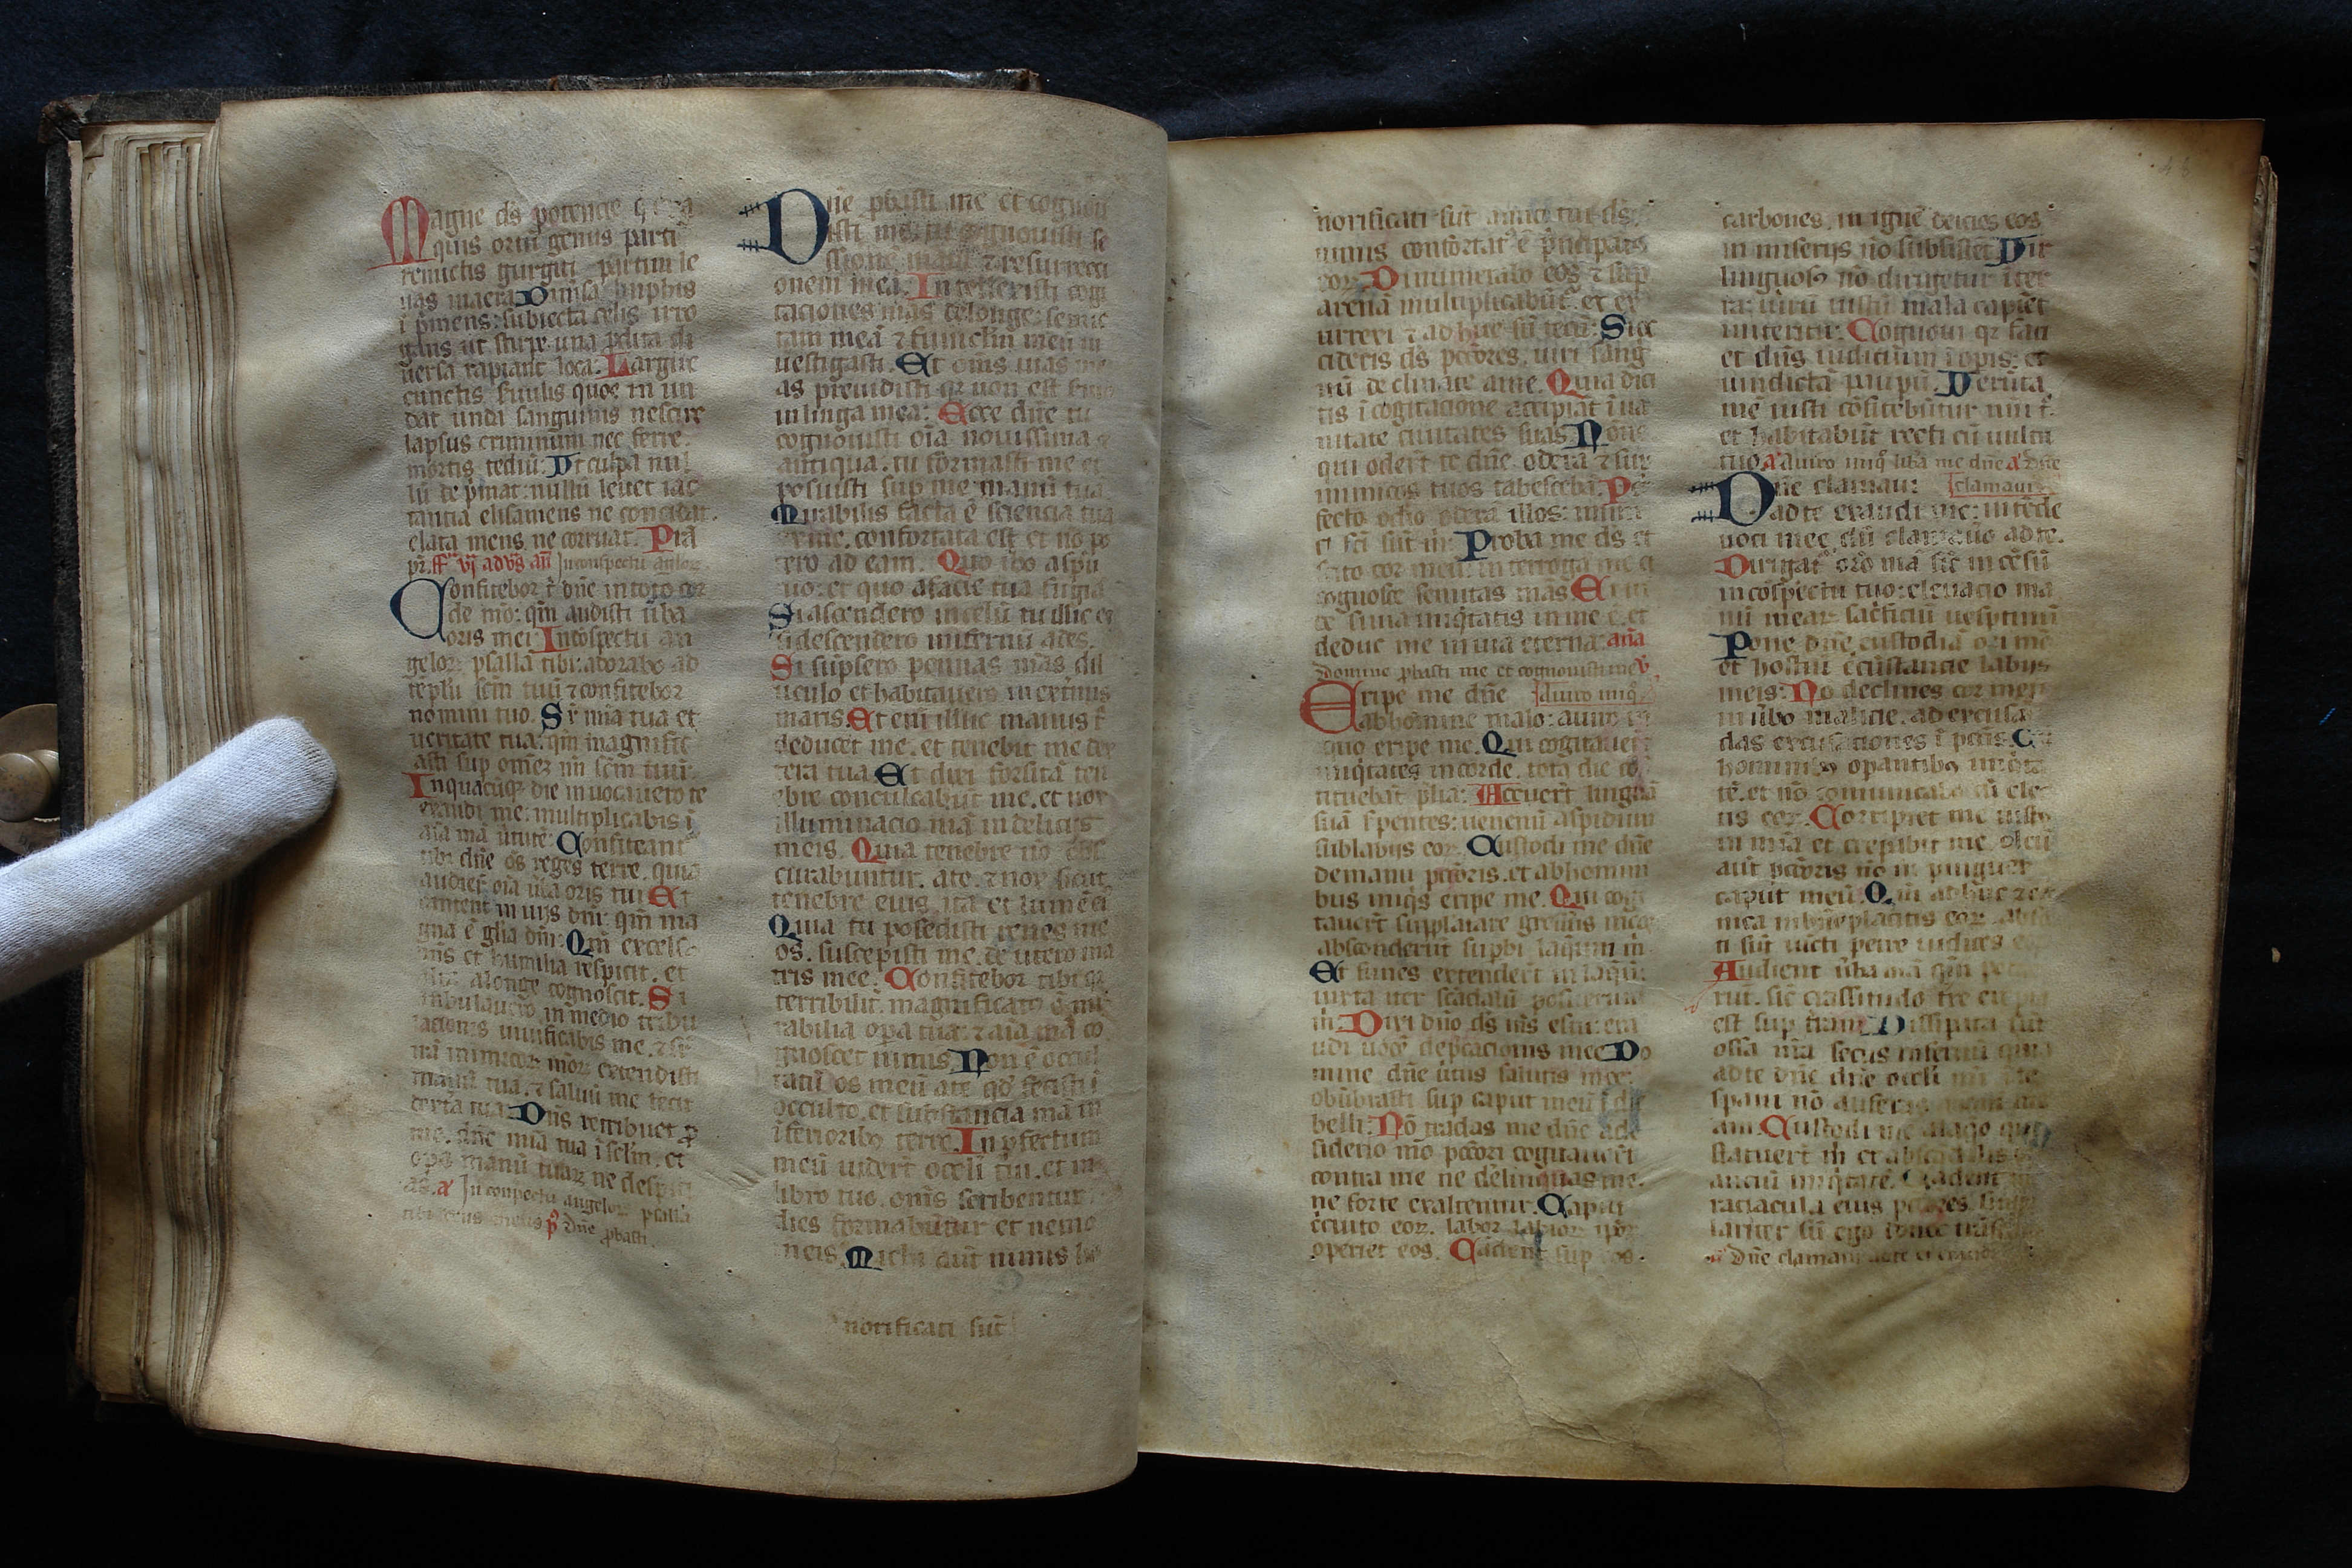 Magne ds potencie
quis ortu genus parti
remictis gurgiti partim le
uas in aera Dimsa limphis
i pmens: subuecta celis irro
gans ut stirpe una pdita di
uersa rapiant loca: Largire
cunctis seruulis quos in un
dat unda sanguinis nescire
lapsus criminum nec ferre
mortis tediu: Ut culpa nul
lu depmat: nullu leuet iac
tancia elisa mens ne concidat
elata mens ne corruat. Pta
pr. ff vj ad vs añ In conspectu anglor
Confitebor t dñe in toto cor
de mo: qm audisti uba
oris mei In cospectu an
gelor psalla tibi: adorabo ad
teplu scm tuu ⁊ confitebor
nomini tuo. Sr mia tua et
ueritate tua: qm magnific
asti sup omez m scm tuu.
In quacuqz die inuocauero te
exaudi me: multiplicabis i
aia ma uirtute: Confiteant
tibi dñe os reges terre. quia
audiert oia uba oris tui Et
cantent in uijs dni: qm ma
gna e glia dni: Qm excels
dns et humilia respicit. et
alta alonge cognoscit. Si
ambulauero in medio tribu
lacionis uiuificabis me. ⁊ sr
ira inimicor meor extendisti
manu tua. ⁊ saluu me fecit
dextra tua Dns retribuet p
me. dñe mia tua i sclm. et
opa manu tuar ne despici
as. a In conspectu angelor psalla
tibi deus meus p Dñe pbasti.
Dñe pbasti me et cognoui
isti me: tu cognouisti se
ssione mea ⁊ resurrecti
onem mea. Intellexisti cogi
taciones mas de longe: semi
tam mea ⁊ funiclm meu in
uestigasti. Et oms uias me
as preuidisti qr non est smo
in linga mea: Ecce dñe tu
cognouisti oia nouissima ⁊
antiqua: tu formasti me et
posuisti sup me manu tua
Mirabilis facta e sciencia tua
ex me. confortata est et no po
tero ad eam. Quo ibo aspu
tuo: et quo afacie tua fugia
Si ascendero in celu tu illic es
si descendero in infernu ades.
Si supsero pennas mas dil
uculo et habitauero in extmis
maris. Et eni illic manus t
deducet me. et tenebit me dex
tera tua Et dixi forsita ten
ebre conculcabut me. et nox
illuminacio ma in delicijs
meis. Quia tenebre no obs
curabuntur. ate. ⁊ nox sicut
tenebre eius. ita et lumen ei
Quia tu possedisti renes me
os. suscepisti me. de utero ma
tris mee: Confitebor tibi qr
terribilit. magnificato e mi
rabilia opa tua: ⁊ aia ma co
gnoscet nimis Non e occul
tatu os meu ate qd fecisti i
occulto. et substancia ma in
iferiorib terre. Inpfectum
meu uidert oculi tui. et in
libro tuo. oms scribentur
dies formabuntur et nemo
in eis. Michi aut nimis ho
norificati sut
norificati sut amici tui ds
nimis confortat e pncipats
eor: Dinumerabo eos ⁊ sup
arena multiplicabut. et ex
urrexi ⁊ ad huc su tecu: Si oc
cideris ds pctores. uiri sang
uinu declinate ame. Quia dici
tis i cogitacione accipiat i ua
nitate ciuitates suas. None
qui odert te dñe. odera ⁊ sup
inimicos tuos tabesceba: Per
fecto odio odera illos: inimi
ci fci sut m: Proba me ds et
scito cor meu: interroga me ⁊
cognosce semitas mas Et ui
de si uia iniqtatis in me e. et
deduc me in uia eterna: aña
Domine pbasti me et cognouisti me
Eripe me dñe a uiro iniq
ab homine malo: a uiro in
iquo eripe me. Qui cogitauert
iniqtates in corde. tota die co
stituebat plia: Accuert lingua
sua s pentes: uenenu aspidum
sub labijs eor. Custodi me dñe
de manu pctoris. et ab homini
bus iniqs eripe me. Qui cogi
tauert supplantare gressus meos
absconderut supbi laqum m
Et funes extendert in laqu:
iuxta iter scadalu posuerunt
m: Dixi dño ds ms es tu: exa
udi uoce depcacionis mee Do
mine dñe utus salutis mee:
obubrasti sup caput meu i die
belli: No tradas me dñe ade
siderio mo pctori cogitauert
contra me ne delinquas me.
ne forte exaltentur. Caput
circuito eor. labor labior ipor
operiet eos. Cadent sup eos
carbones. in igne deicies eos
in miserijs no subsistet Vir
linguos no dirigetur i ter
ra: uiru iustu mala capiet
in interitu: Cognoui qr faci
et dns iudicium inopis: et
uindicta paupu Veruta
me iusti cofitebuntur nini t.
et habitabut recti cu uultu
tuo a A uiro iniq liba me dñe a Dñe
Dñe clamaui clamaui
ad te exaudi me: intede
uoci mee cu clamauo ad te.
Dirigat oro ma sic incesu
in cospectu tuo: eleuacio ma
nu mear sacficiu uesptinu
Pone dñe custodia ori mo
et hostiu circustancie labijs
meis: No declines cor meu
in ubo malicie. ad excusa
das excusaciones i pctis. Cu
hominib opantib iniqta
te. et no comunicabo cu elc
tis eor. Corripiet me iusts
in mia et increpabit me. oleu
aut pctoris no inpinguet
caput meu. Qm adhuc ⁊ or
mea in bneplacitis eor. abso
ti sut iucti petre iudices eo
Audient uba ma qm pot
rut. sic crassitudo tre eru
est sup tram Dissipata sut
ossa nra secus infernu quia
ad te dñe dñe oculi mi i te
spaui no auferas
am. Custodi me alaqo que
statuert m et abscandalis
anciu iniqtate. Cadent in
raciacula eius pctores. sing
lariter su ego donec transea
a Dñe clamaui ad te exaudi